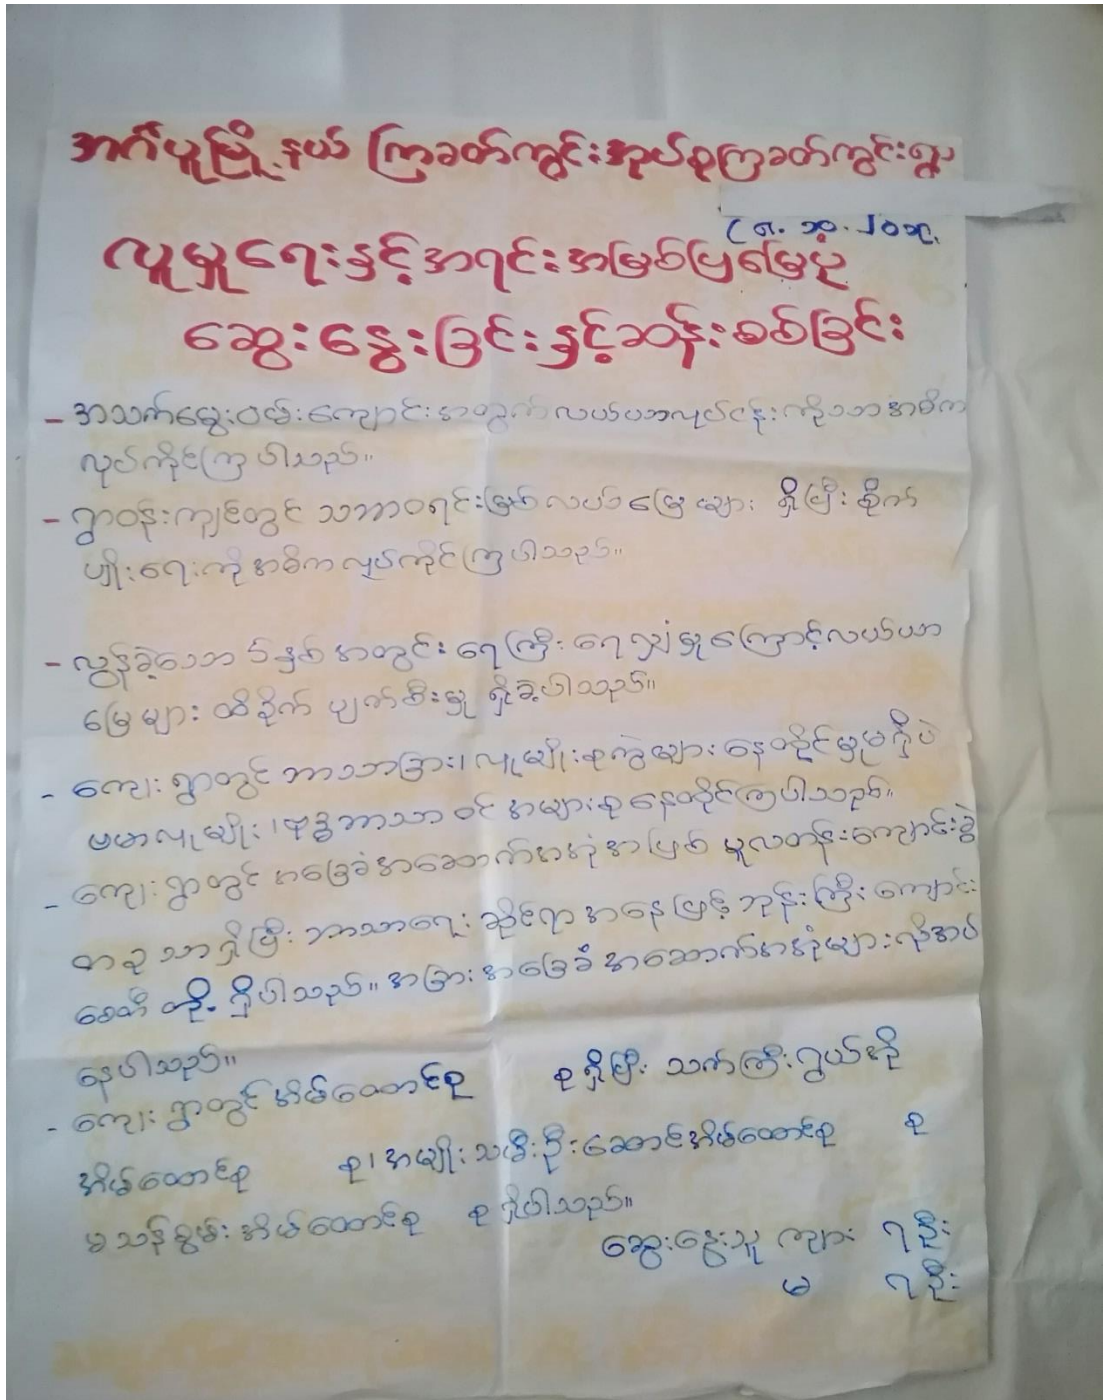 အင်္ဂပူမြို့နယ် ကြခတ်ကွင်းအုပ်စုကြခတ်ကွင်းရွာ
(၈.၁၃.၂၀၁၃)
လူမှုရေးနှင့်အရင်းအမြစ်ပြမြေပုံ
ဆွေးနွေးခြင်းနှင့်ဆန်းစစ်ခြင်း
- အသက်မွေးဝမ်းကျောင်းအတွက်လယ်ယာလုပ်ငန်းကိုသာအဓိက
လုပ်ကိုင်ကြပါသည်။
- ရွာဝန်းကျင်တွင် သဘာဝရင်းမြစ်လယ်မြေများ ရှိပြီးစိုက်
ပျိုးရေးကိုအဓိကလုပ်ကိုင်ကြပါသည်။
- လွန်ခဲ့သော ၆နှစ်အတွင်း ရေကြီးရေလျှံမှုကြောင့်လယ်ယာ
မြေများ ထိခိုက်ပျက်စီးမှု ရှိခဲ့ပါသည်။
- ကျေးရွာတွင် ဘာသာခြား၊လူမျိုးစုကွဲများနေထိုင်မှုမရှိပဲ
ဗမာလူမျိုး၊ဗုဒ္ဓဘာသာဝင်အများစုနေထိုင်ကြပါသည်။
- ကျေးရွာတွင် အခြေခံအဆောက်အအုံအဖြစ် မူလတန်းကျောင်းခွဲ
တခုသာရှိပြီး ဘာသာရေးဆိုင်ရာအနေဖြင့်ဘုန်းကြီးကျောင်း
စေတီတို့ ရှိပါသည်။ အခြားအခြေခံအဆောက်အအုံများလိုအပ်
နေပါသည်။
- ကျေးရွာတွင်အိမ်ထောင်စု စုရှိပြီး သက်ကြီးရွယ်အို
အိမ်ထောင်စု စု၊အမျိုးသမီးဦးဆောင်အိမ်ထောင်စု စု
မသန်စွမ်းအိမ်ထောင်စု စုရှိပါသည်။
ဆွေးနွေးသူ ကျား ၇ဦး
မ ၇ဦး